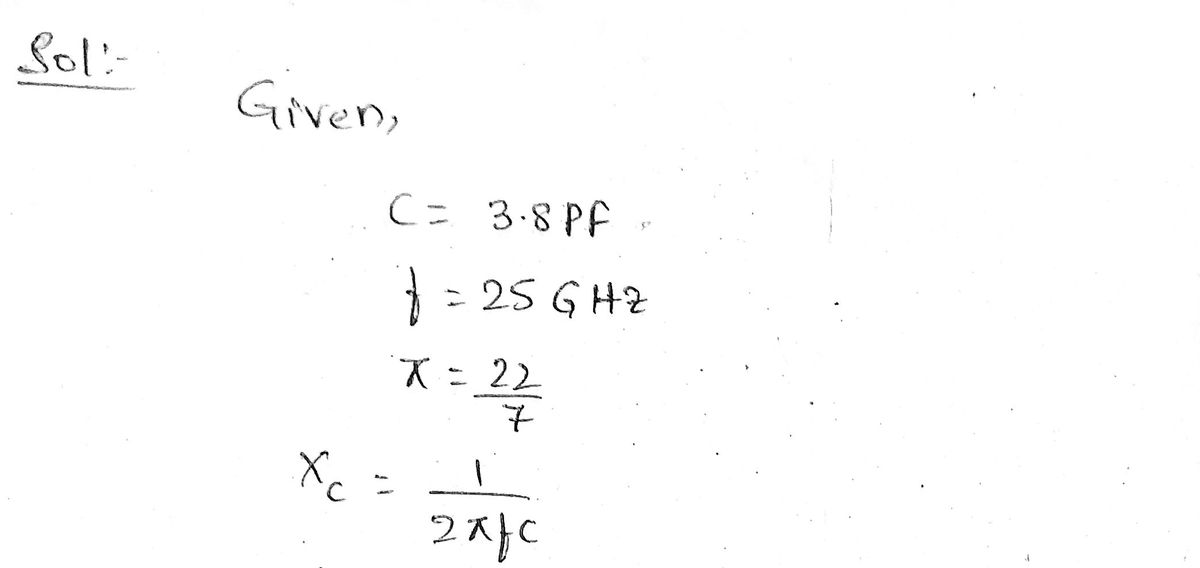 Sol:-
Given,
C = 3.8 PF
f = 25 GHZ
π = 22/7
Xc = 1/2πfC